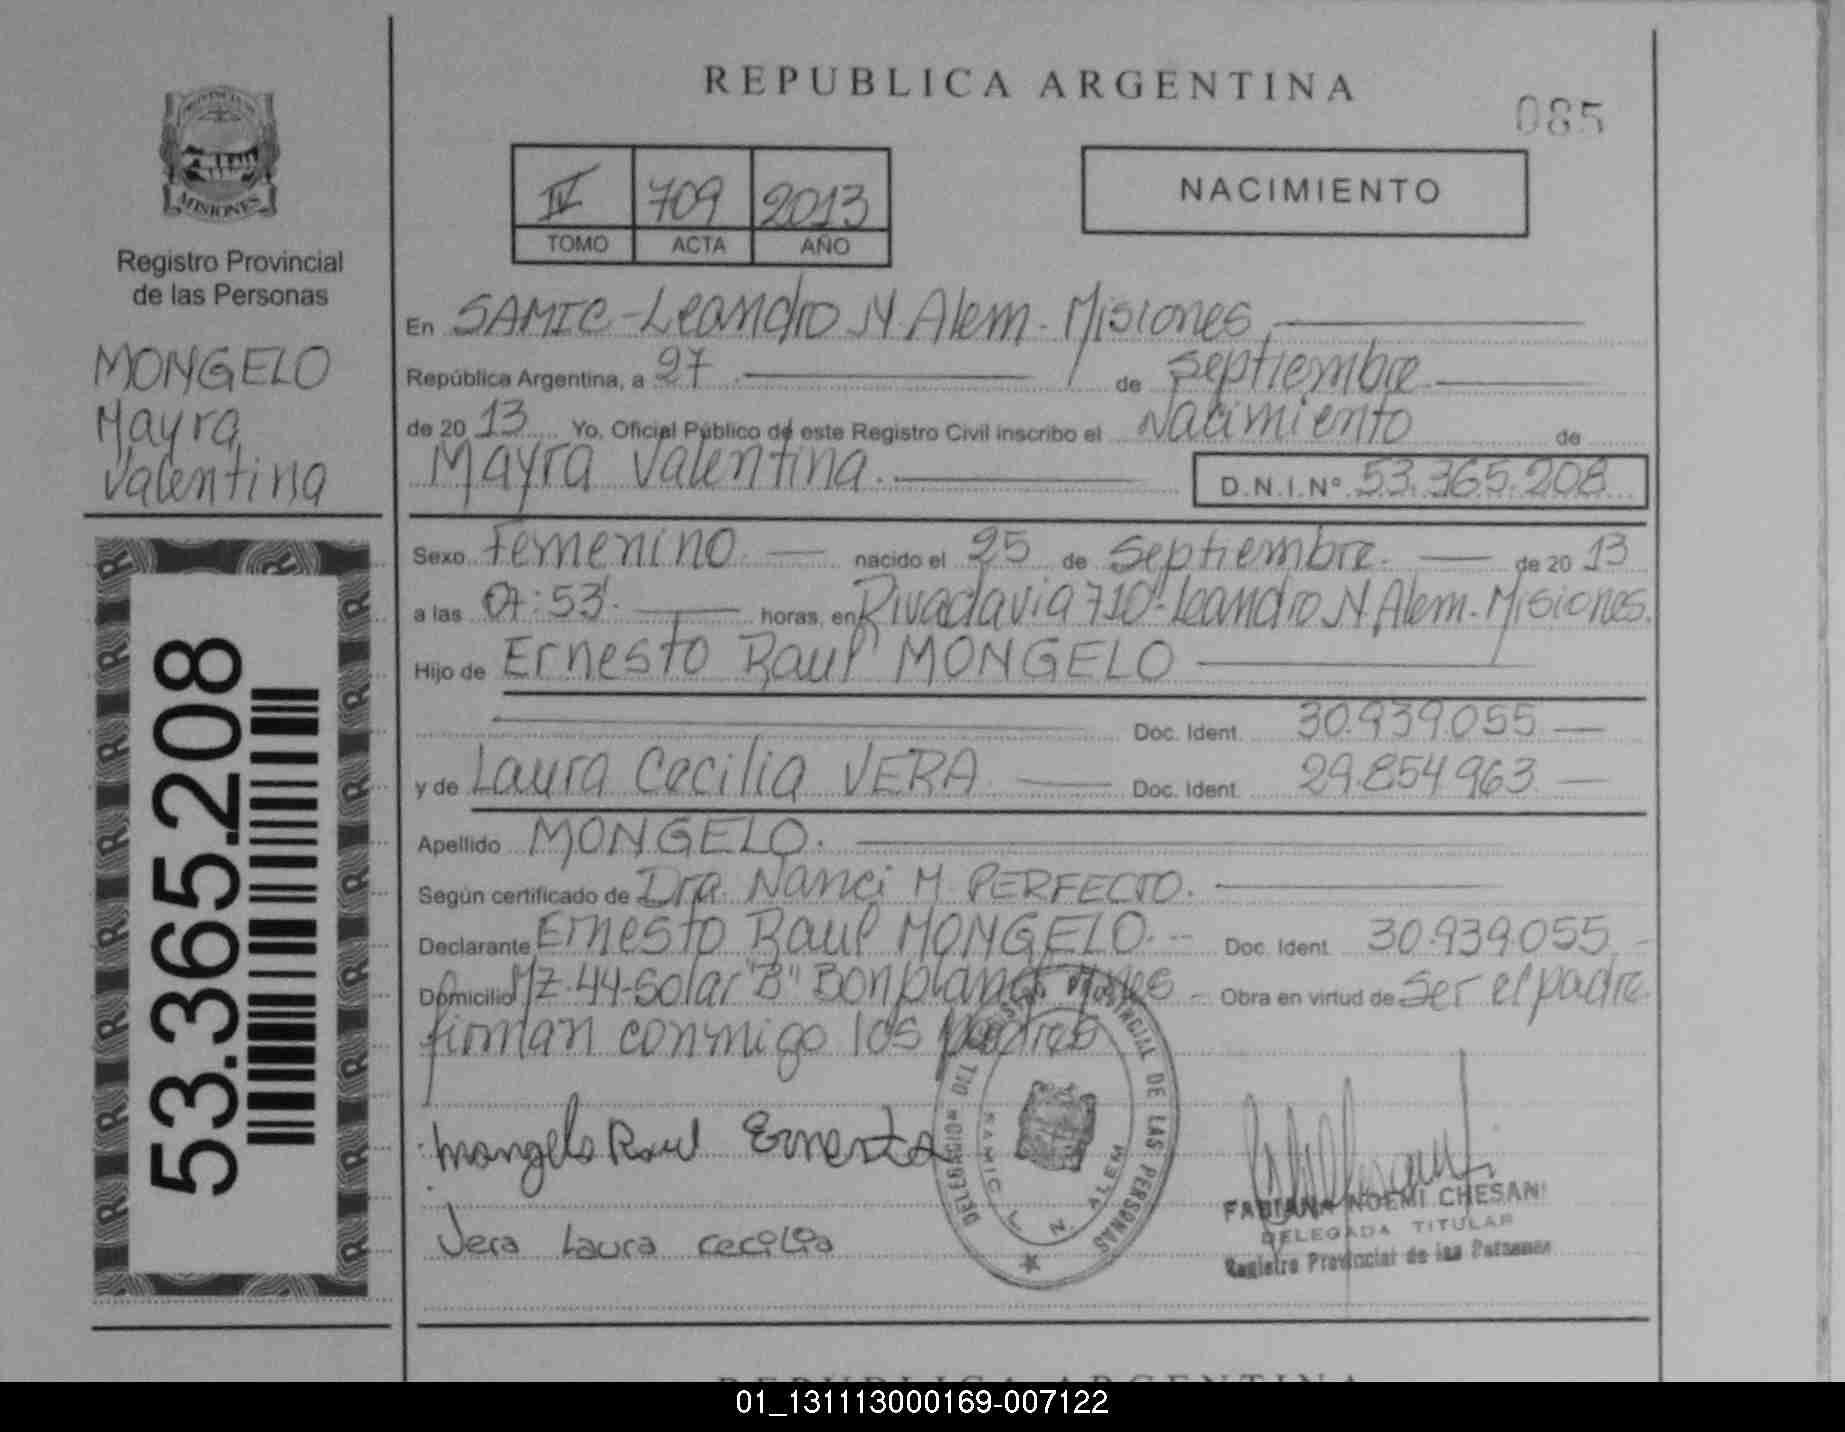 REPUBLICA ARGENTINA
085
PROVINCIA DE
MISIONES
Registro Provincial
de las Personas
MONGELO
Mayra
Valentina
53.365.208
IV 709 2013
TOMO ACTA AÑO
NACIMIENTO
En SAMIC - Leandro N. Alem - Misiones
República Argentina, a 27 de septiembre
de 20 13 Yo, Oficial Público de este Registro Civil inscribo el Nacimiento de
Mayra Valentina. D.N.I.Nº 53.365.208
Sexo Femenino. nacido el 25 de Septiembre. de 20 13
a las 07:53'. horas, en Rivadavia 710 - Leandro N. Alem - Misiones.
Hijo de Ernesto Raul MONGELO
Doc. Ident. 30.939.055
y de Laura Cecilia VERA Doc. Ident. 29.854.963
Apellido MONGELO.
Según certificado de Dra. Nanci M. PERFECTO.
Declarante Ernesto Raul MONGELO. Doc. Ident. 30.939.055
Domicilio Mz. 44 - Solar "B" Bonpland Mnes Obra en virtud de ser el padre.
firman conmigo los padres
Mongelo Raul Ernesto
Vera Laura Cecilia
DELEGACION DEL REGISTRO PROVINCIAL DE LAS PERSONAS
SAMIC L. N. ALEM
FABIANA NOEMI CHESANI
DELEGADA TITULAR
Registro Provincial de las Personas
REPUBLICA ARGENTINA
01_131113000169-007122